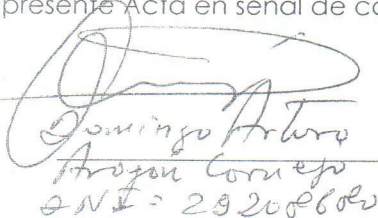 presente Acta en señal de co
Domingo Arturo
Aragón Cornejo
DNI =